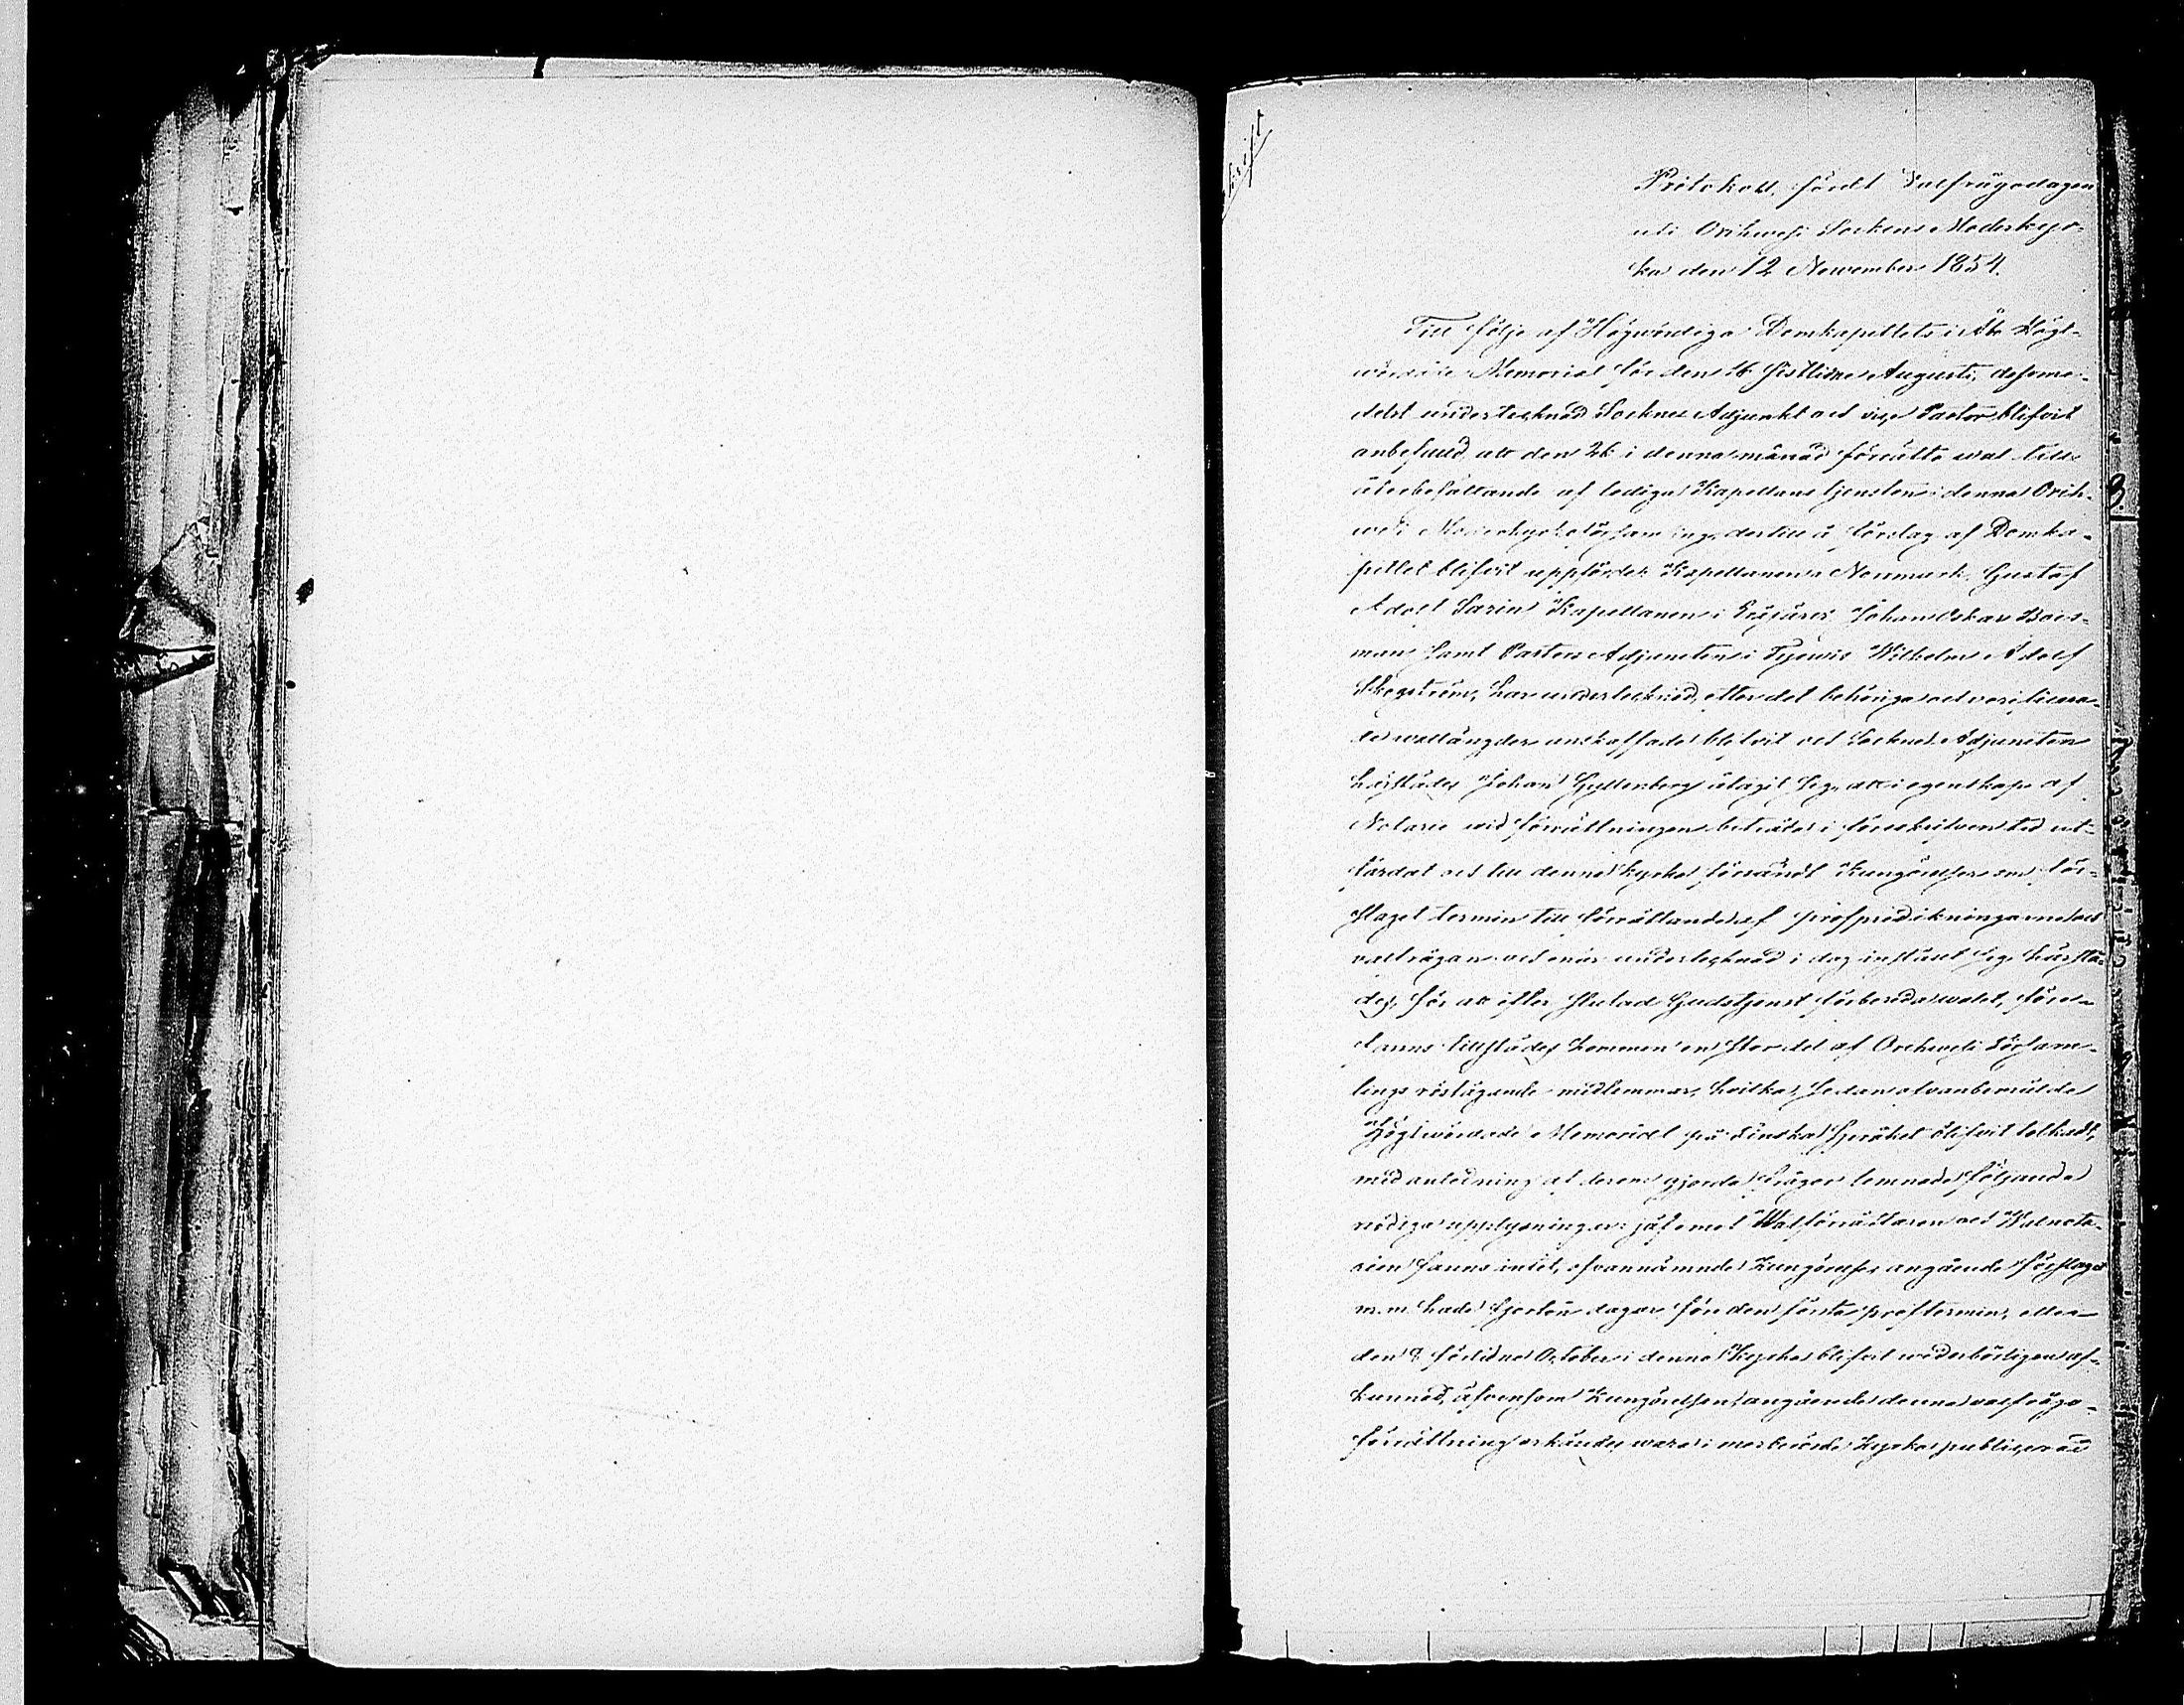 Protokoll, fördt Valfrågodagen
uti Orihvesi Sockens Moderkyr-
ka den 12 November 1854.
Till följe af Högwördiga Domkapitlets i Åbo Högt-
wördade Memorial för den 16 sistlidne Augusti, deseme-
delst undertecknad Sockne Adjunkt och vice Pastor blifvit
anbefalld att den 26 i denna månad förrätta wal till
återbesättande af lediga Kapellans tjensten i denna Orih-
wesi Moderkyrkoförsamling, dertill å förslag af Domka-
pitlet blifvit uppförde: Kapellanen i Nonmark Gustaf
Adolf Sarin Kapellanen i Johan Oskar Bors-
man samt Pastors Adjuncten i Tyrwis Wilhelm Adolf
Skogström, har undertecknad, efter det behöriga och verifiera-
de wallängder anskaffade blifvit och Sockne Adjuncten
härstädes Johan Gyllenberg åtagit sig, att i egenskap af
Notarie wid förrättningen biträda i föreskrifven tid ut-
färdat och till denna kyrka försändt Kungörelser om för-
slaget termin till förrättande af profpredikningarne och
valfrågan och enär undertecknad i dag instält sig härstä-
des, för att efter slutad Gudstjenst förbereda walet, före-
fanns tillstädes kommen en stor del af Orihwesi Försam-
lings röstägande medlemmar, hvilka, sedan ofvanberörde
Högtwördade Memorial på Finska Språket blifvit tolkadt,
med anledning af derom gjorda frågor lemnade följande
nödiga upplysningar: jäf emot Walförrättaren och Valnota-
rien fanns intet, ofvannämnde Kungörelse angående förslaget
m.m. hade fjorton dagar före den första proftermin, eller
den 9 förlidne October i denna Kyrka blifvit wederbörligen af-
kunnad, äfvensom Kungörelsen angående denna valfrågo-
förrättning erkändes wara i merberörde Kyrka publicerad